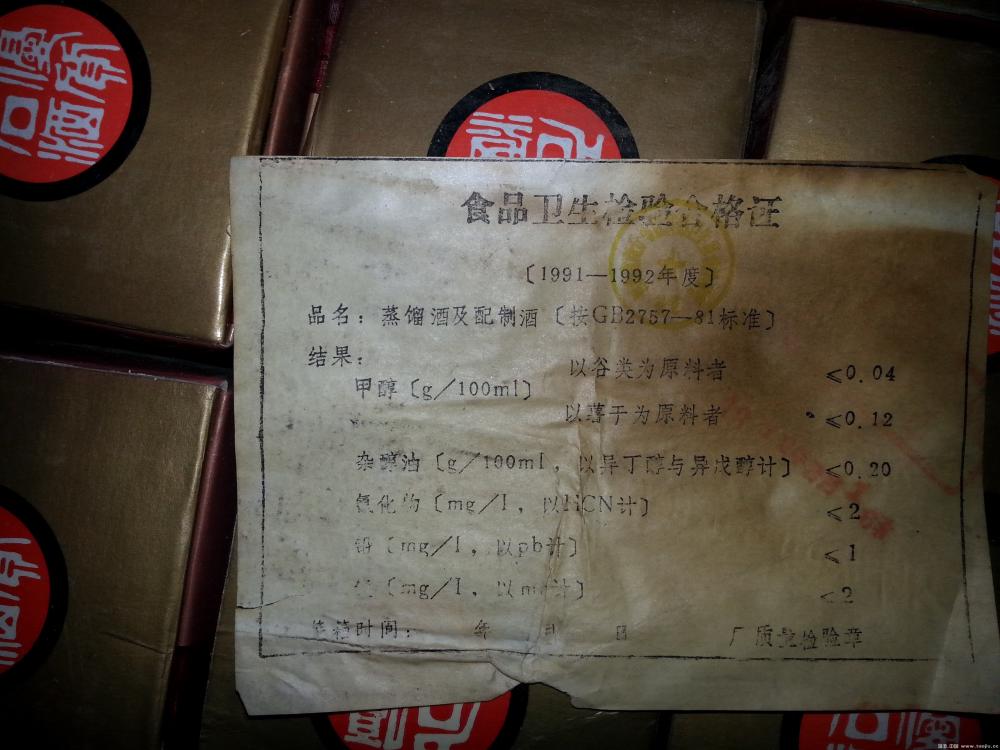 食品卫生检验合格证
〔1991—1992年度〕
品名：蒸馏酒及配制酒〔按GB2757—81标准〕
结果：
甲醇〔g/100ml〕
以谷类为原料者 ≤0.04
以薯干为原料者 ≤0.12
杂醇油〔g/100ml，以异丁醇与异戊醇计〕 ≤0.20
氰化物〔mg/l，以HCN计〕 ≤2
铅〔mg/l，以pb计〕 ≤1
〔mg/l，以mn计〕 ≤2
装箱时间： 年 月 日 厂质量检验章